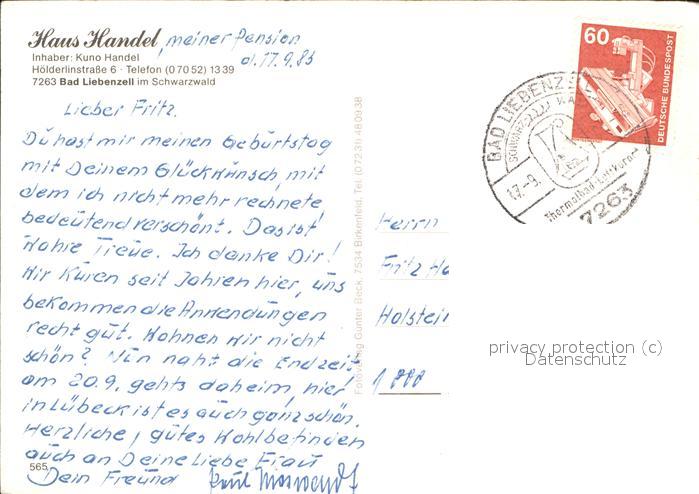 Haus Handel, meiner Pension
Inhaber: Kuno Handel
d. 17.9.85
Hölderlinstraße 6 · Telefon (0 70 52) 13 39
7263 Bad Liebenzell im Schwarzwald
Lieber Fritz.
Du hast mir meinen Geburtstag
mit Deinem Glückwunsch, mit
dem ich nicht mehr rechnete
bedeutend verschönt. Das ist
wahre Treue. Ich danke Dir!
Wir kuren seit Jahren hier, uns
bekommen die Anwendungen
recht gut. Wohnen wir nicht
schön? Nun naht die Endzeit
am 20.9. gehts daheim, hier
in Lübeck ist es auch ganz schön.
Herzliche, gutes Wohlbefinden
auch an Deine liebe Frau
565
Dein Freund
Fotoverlag Günter Beck, 7534 Birkenfeld, Tel. (0 72 31) 48 09 38
Herrn
Fritz Ha
Holstein
1000
60
DEUTSCHE BUNDESPOST
BAD LIEBENZ
17.-9.
Thermalbad-Luftkurort
7263
privacy protection (c)
Datenschutz